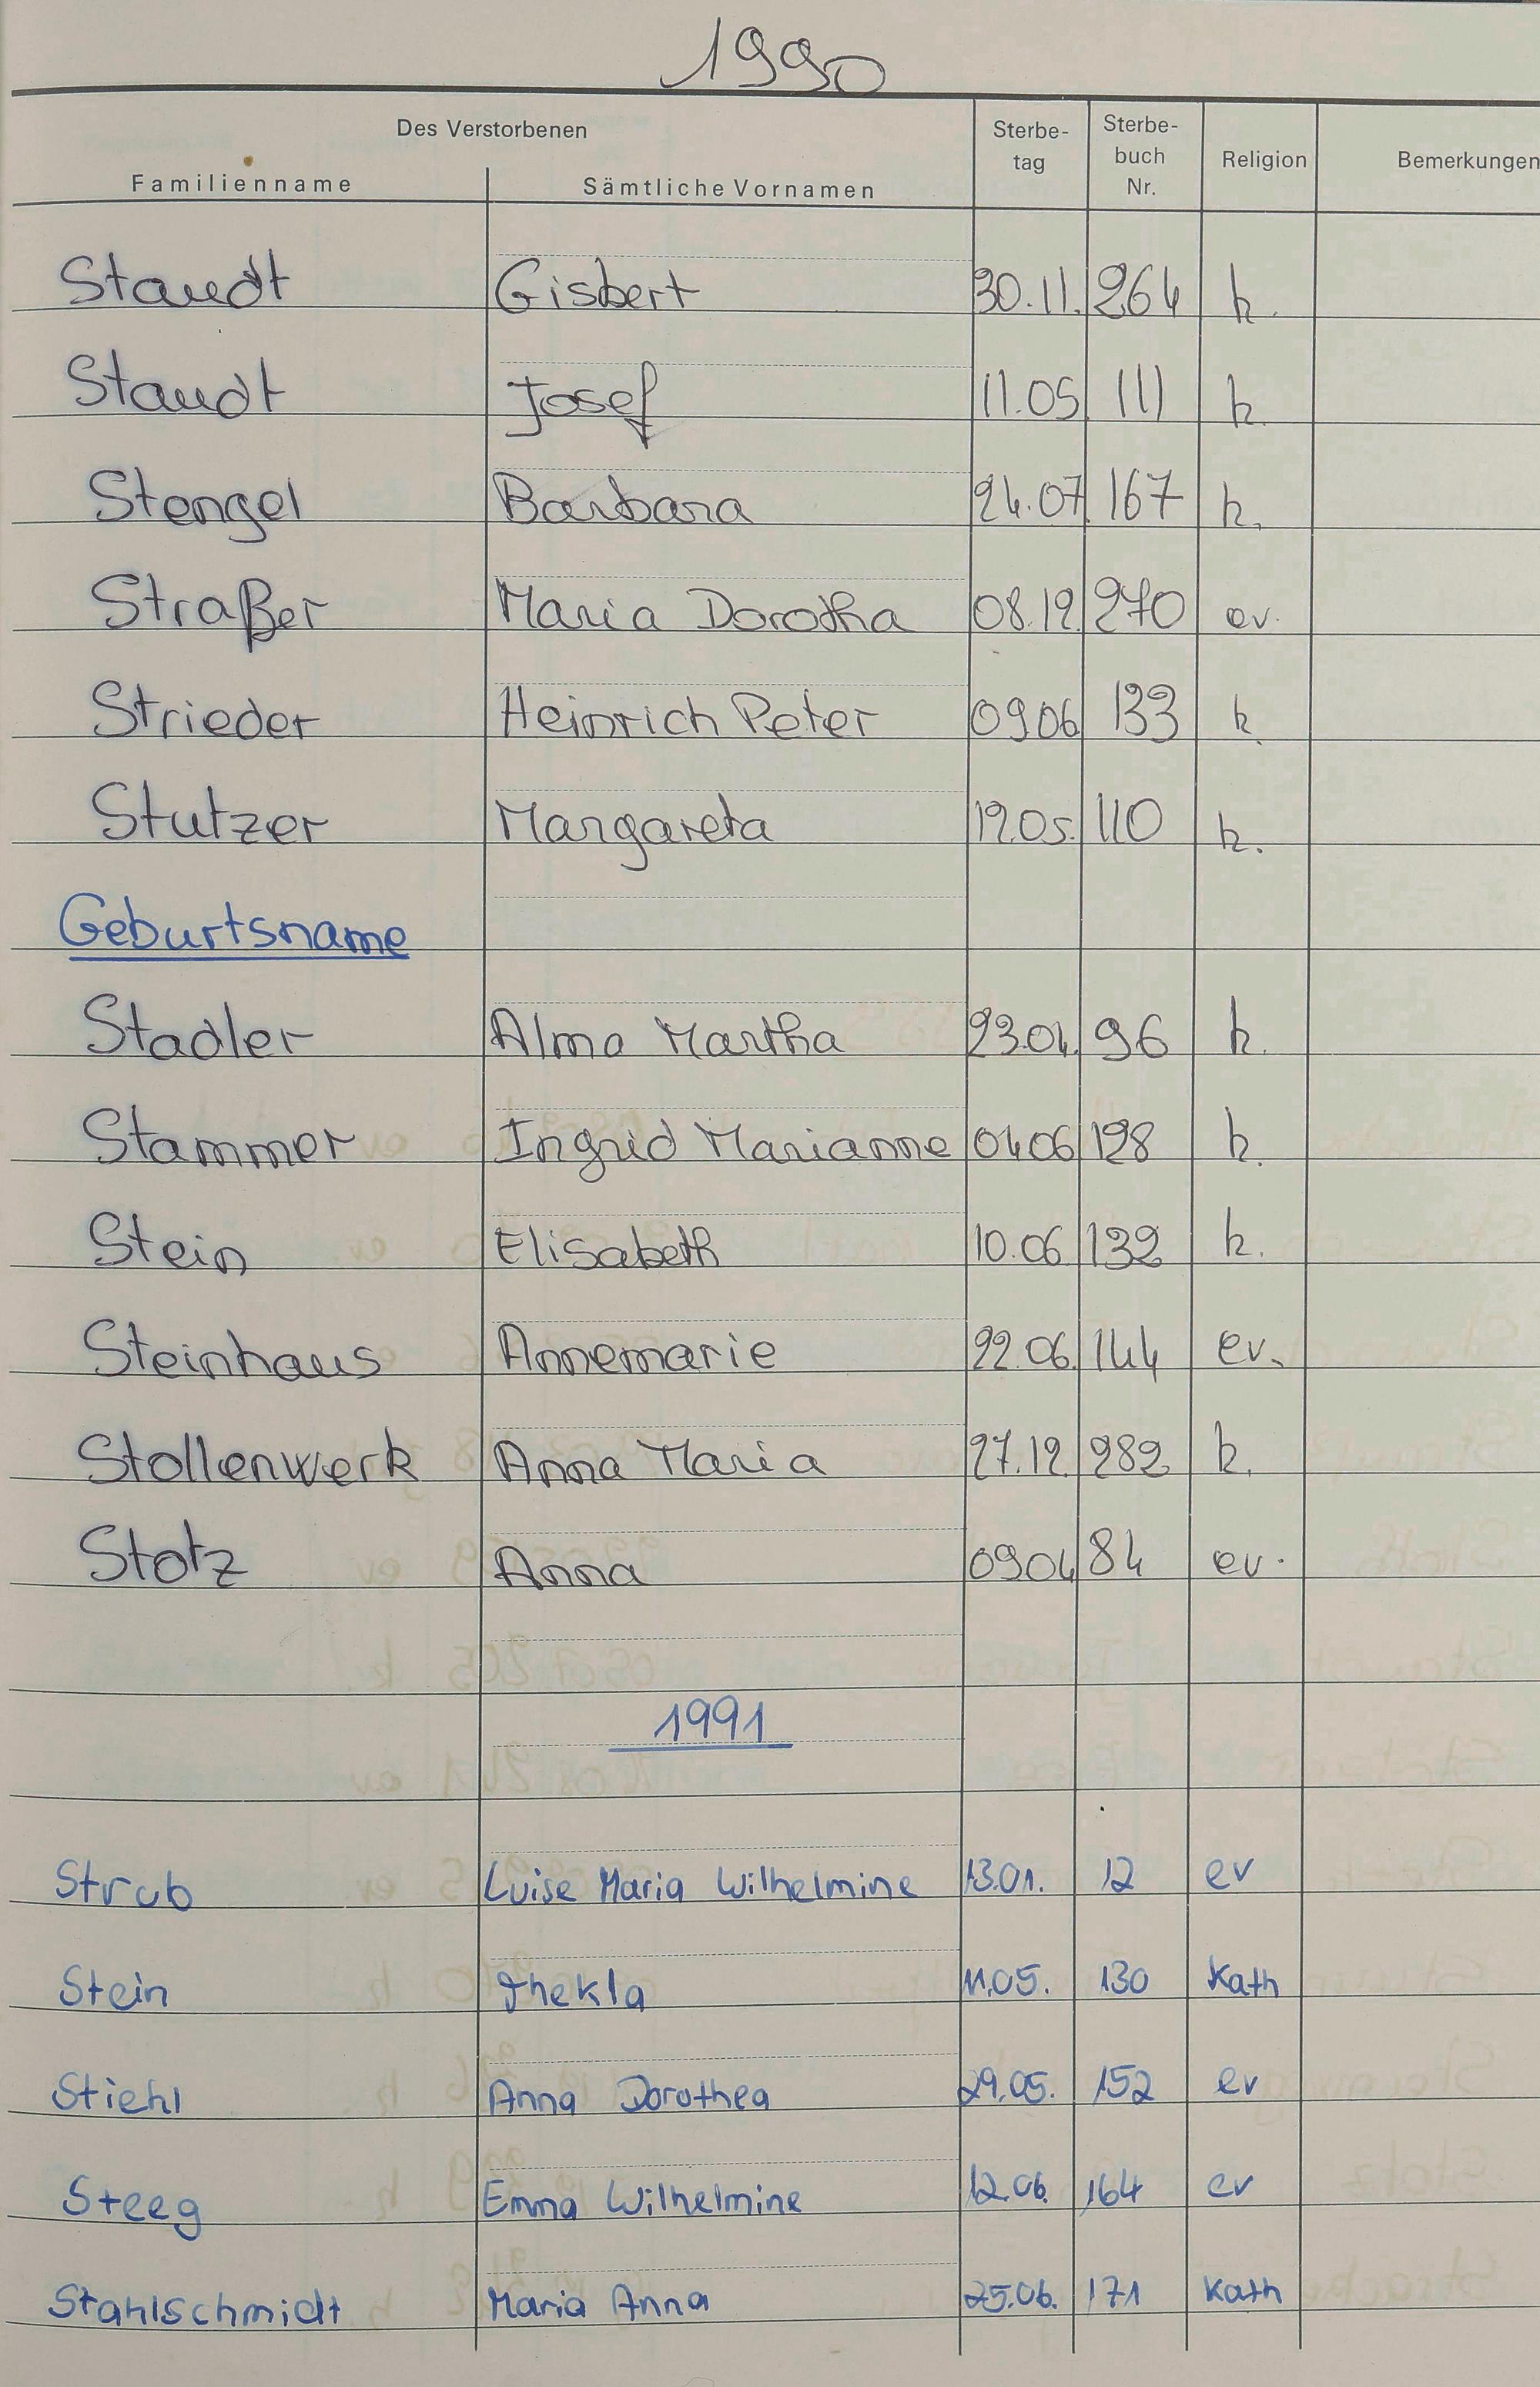 1990
Des Verstorbenen
Familienname Sämtliche Vornamen Sterbe-tag Sterbe-buch Nr. Religion Bemerkungen
Staudt Gisbert 30.11. 264 k.
Staudt Josef 11.05 111 k.
Stengel Barbara 24.07. 167 k.
Straßer Maria Dorotha 08.12. 270 ev.
Strieder Heinrich Peter 09.06 133 k.
Stutzer Margareta 12.05. 110 k.
Geburtsname
Stadler Alma Martha 23.04. 96 k.
Stammer Ingrid Marianne 04.06 128 k.
Stein Elisabeth 10.06 132 k.
Steinhaus Annemarie 22.06. 144 ev.
Stollenwerk Anna Maria 27.12. 282 k.
Stotz Anna 09.04 84 ev.
1991
Strub Luise Maria Wilhelmine 13.01. 12 ev
Stein Thekla 11.05. 130 Kath
Stiehl Anna Dorothea 29.05. 152 ev
Steeg Emma Wilhelmine 12.06. 164 ev
Stahlschmidt Maria Anna 25.06. 171 Kath